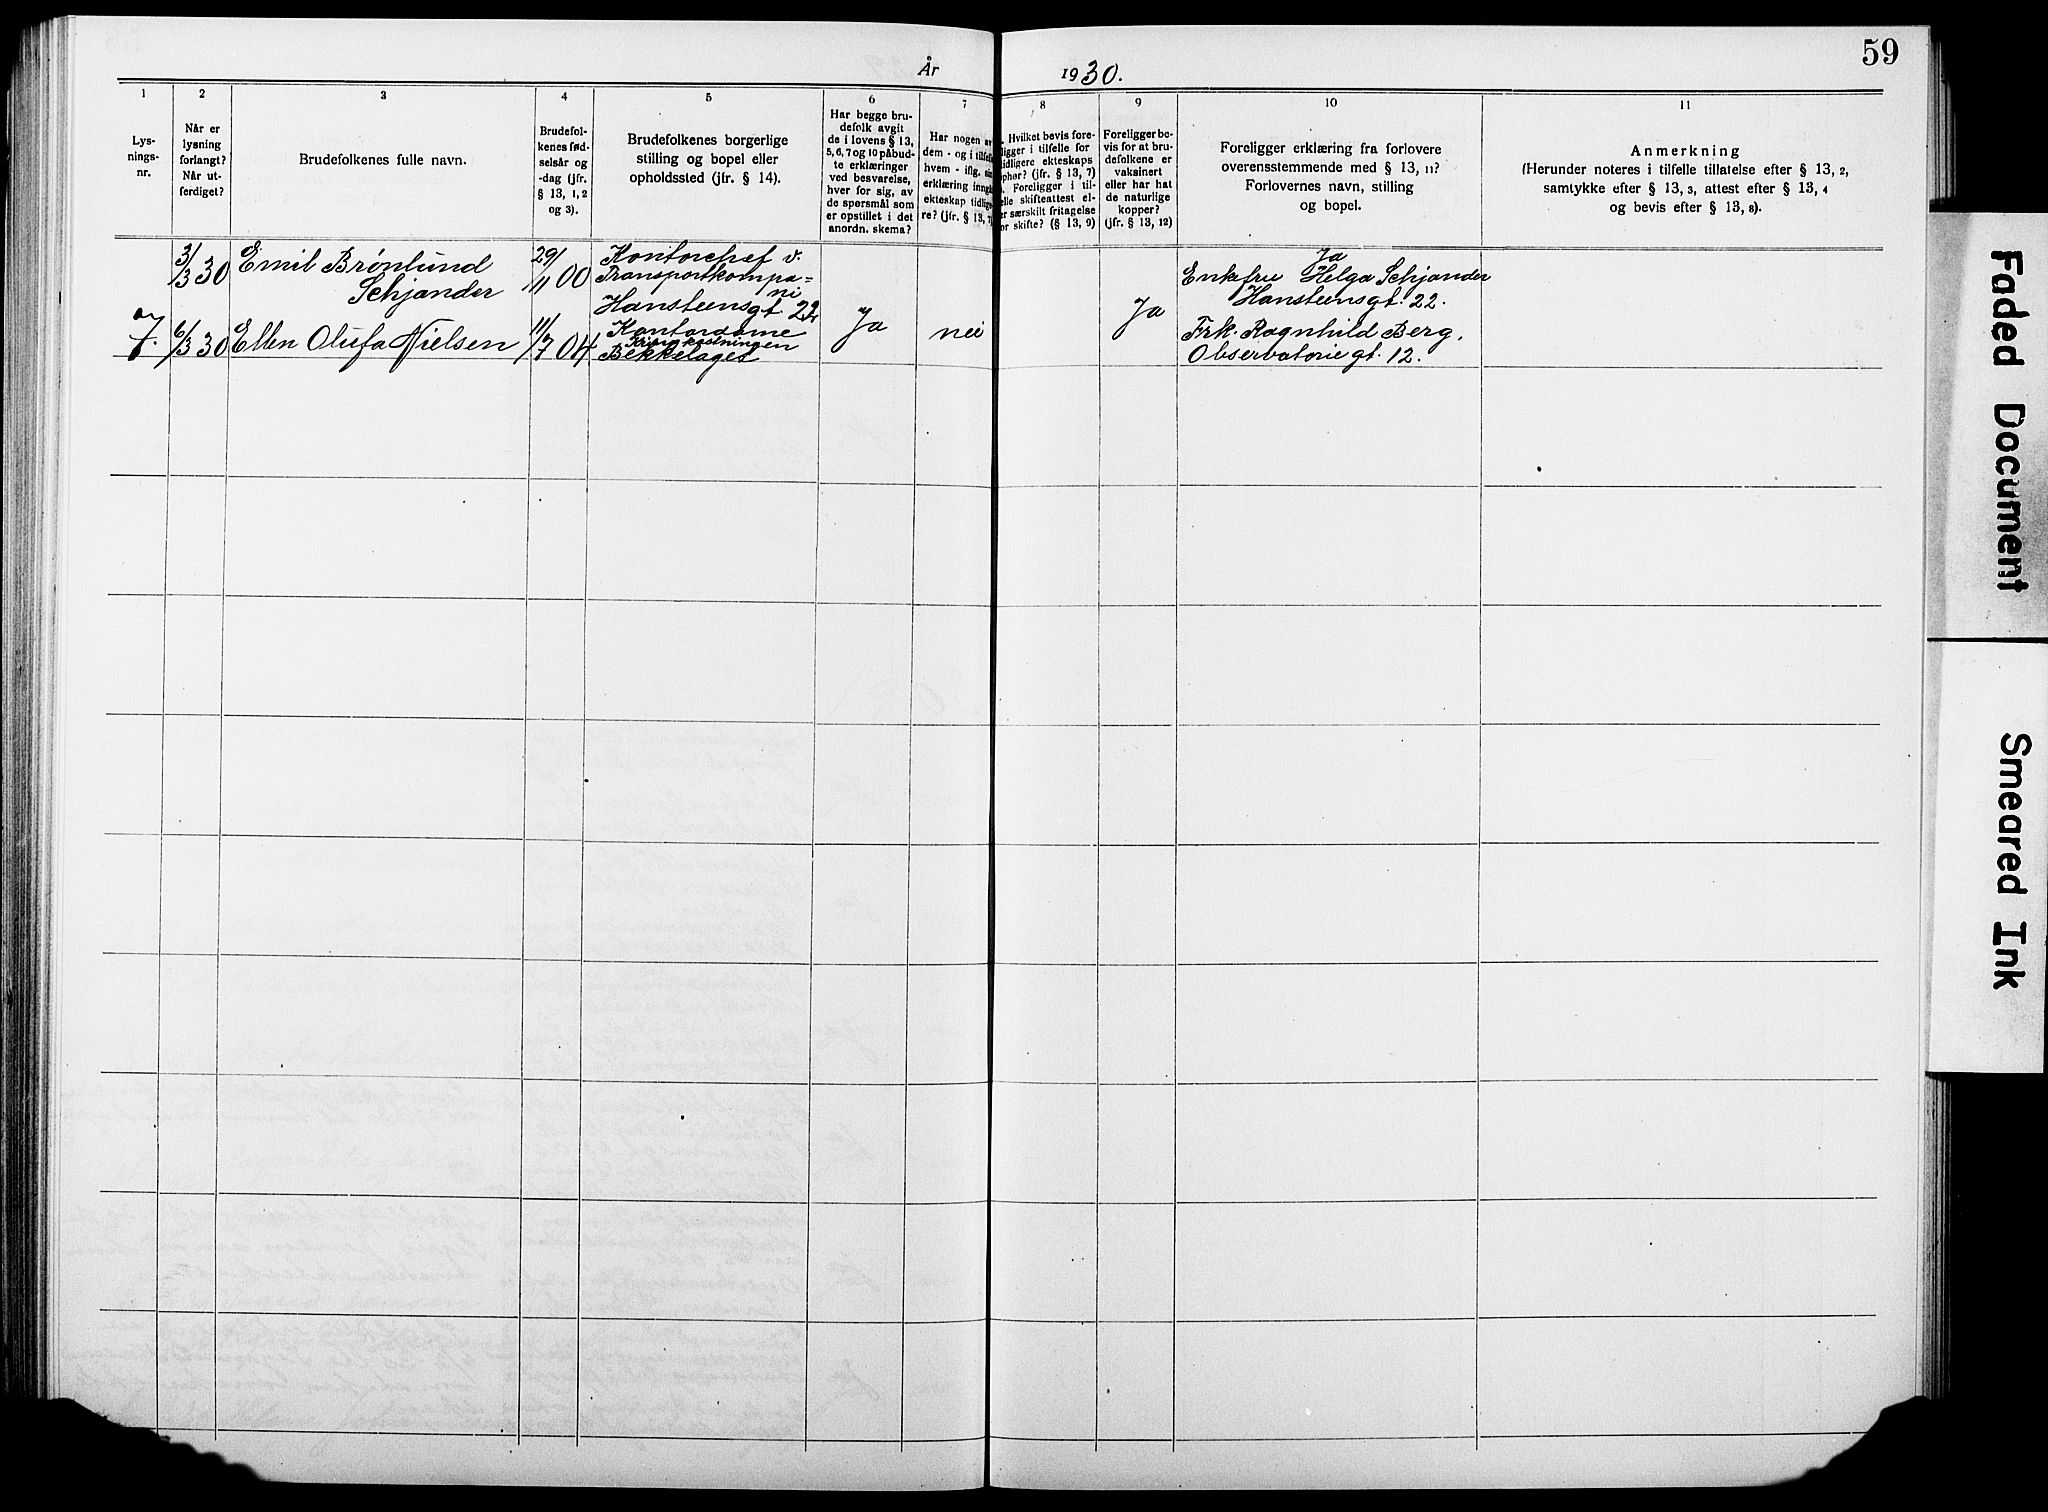 59
År 1930.
1
Lys-
nings-
nr.
2
Når er
lysning
forlangt?
Når ut-
ferdiget?
3
Brudefolkenes fulle navn.
4
Brudefol-
kenes fød-
selsår og
-dag (jfr.
§ 13, 1, 2
og 3).
5
Brudefolkenes borgerlige
stilling og bopel eller
opholdssted (jfr. § 14).
6
Har begge bru-
defolk avgit
de i lovens § 13,
5, 6, 7 og 10 påbud-
te erklæringer
ved besvarelse,
hver for sig, av
de spørsmål som
er opstillet i det
anordn. skema?
7
Har nogen av
dem - og i tilfelle
hvem - iflg. sin
erklæring inngå
ekteskap tidlige-
re? (jfr. § 13, 7)
8
Hvilket bevis fore-
ligger i tilfelle for
tidligere ekteskaps
ophør? (jfr. § 13, 7)
Foreligger i til-
elle skifteattest el-
er særskilt fritagelse
or skifte? (§ 13, 9)
9
Foreligger be-
vis for at bru-
defolkene er
vaksinert
eller har hat
de naturlige
kopper?
(jfr. § 13, 12)
10
Foreligger erklæring fra forlovere
overensstemmende med § 13, 11?
Forlovernes navn, stilling
og bopel.
11
Anmerkning
(Herunder noteres i tilfelle tillatelse efter § 13, 2,
samtykke efter § 13, 3, attest efter § 13, 4
og bevis efter § 13, 8).
7.
3/3 30
Emil Brønlund
Schjander
29/11 00
Kontorchef v.
Transportkompa=
ni
Hansteensgt. 22
6/3 30
Ellen Olufa Nielsen
11/7 04
Kontordame
Kringkastningen
Bekkelaget
Ja
nei
Ja
Ja
Enkefru Helga Schjander
Hansteensgt. 22.
Frk. Ragnhild Berg,
Observatorie gt. 12.
Faded Document
Smeared Ink